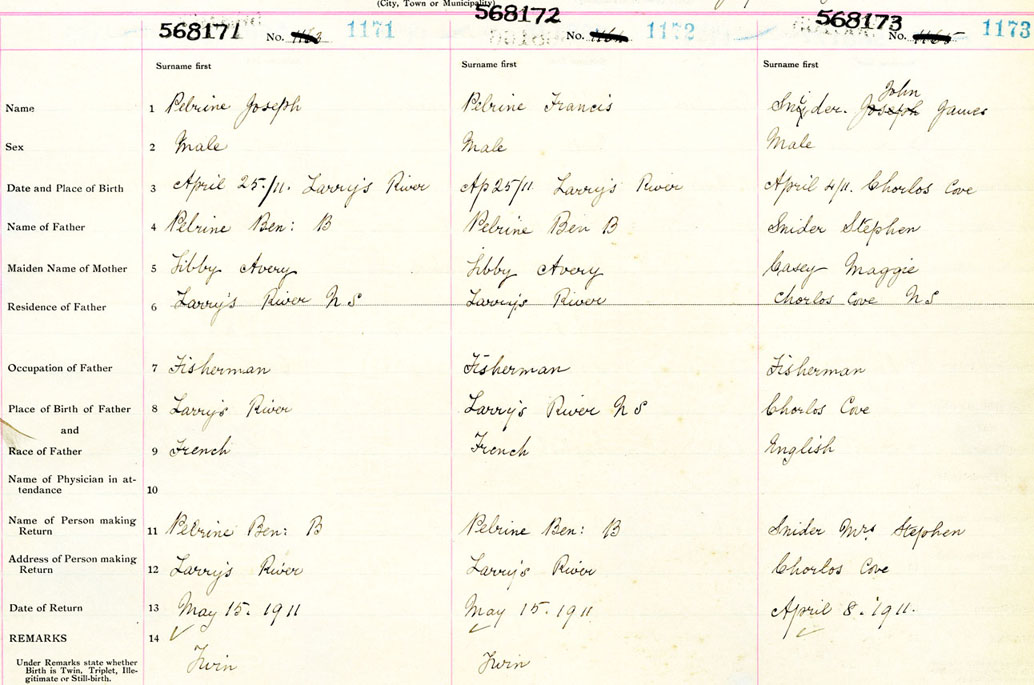 (City, Town or Municipality)
568171 No. 1163 1171 568172 No. 1164 1172 568173 No. 1165 1173
Surname first Surname first Surname first
John
Name 1 Pelrine Joseph Pelrine Francis Snider. Joseph James
Sex 2 Male Male Male
Date and Place of Birth 3 April 25./11. Larry's River Ap 25/11 Larry's River April 4/11. Chorlos Cove
Name of Father 4 Pelrine Ben: B Pelrine Ben B Snider Stephen
Maiden Name of Mother 5 Libby Avery Libby Avery Casey Maggie
Residence of Father 6 Larry's River N S Larry's River Chorlos Cove N S
Occupation of Father 7 Fisherman Fisherman Fisherman
Place of Birth of Father 8 Larry's River Larry's River N S Chorlos Cove
and
Race of Father 9 French French English
Name of Physician in at-
tendance 10
Name of Person making
Return 11 Pelrine Ben: B Pelrine Ben: B Snider Mrs Stephen
Address of Person making
Return 12 Larry's River Larry's River Chorlos Cove
Date of Return 13 May 15. 1911 May 15. 1911 April 8. 1911.
REMARKS 14
Under Remarks state whether
Birth is Twin, Triplet, Ille-
gitimate or Still-birth.
Twin Twin